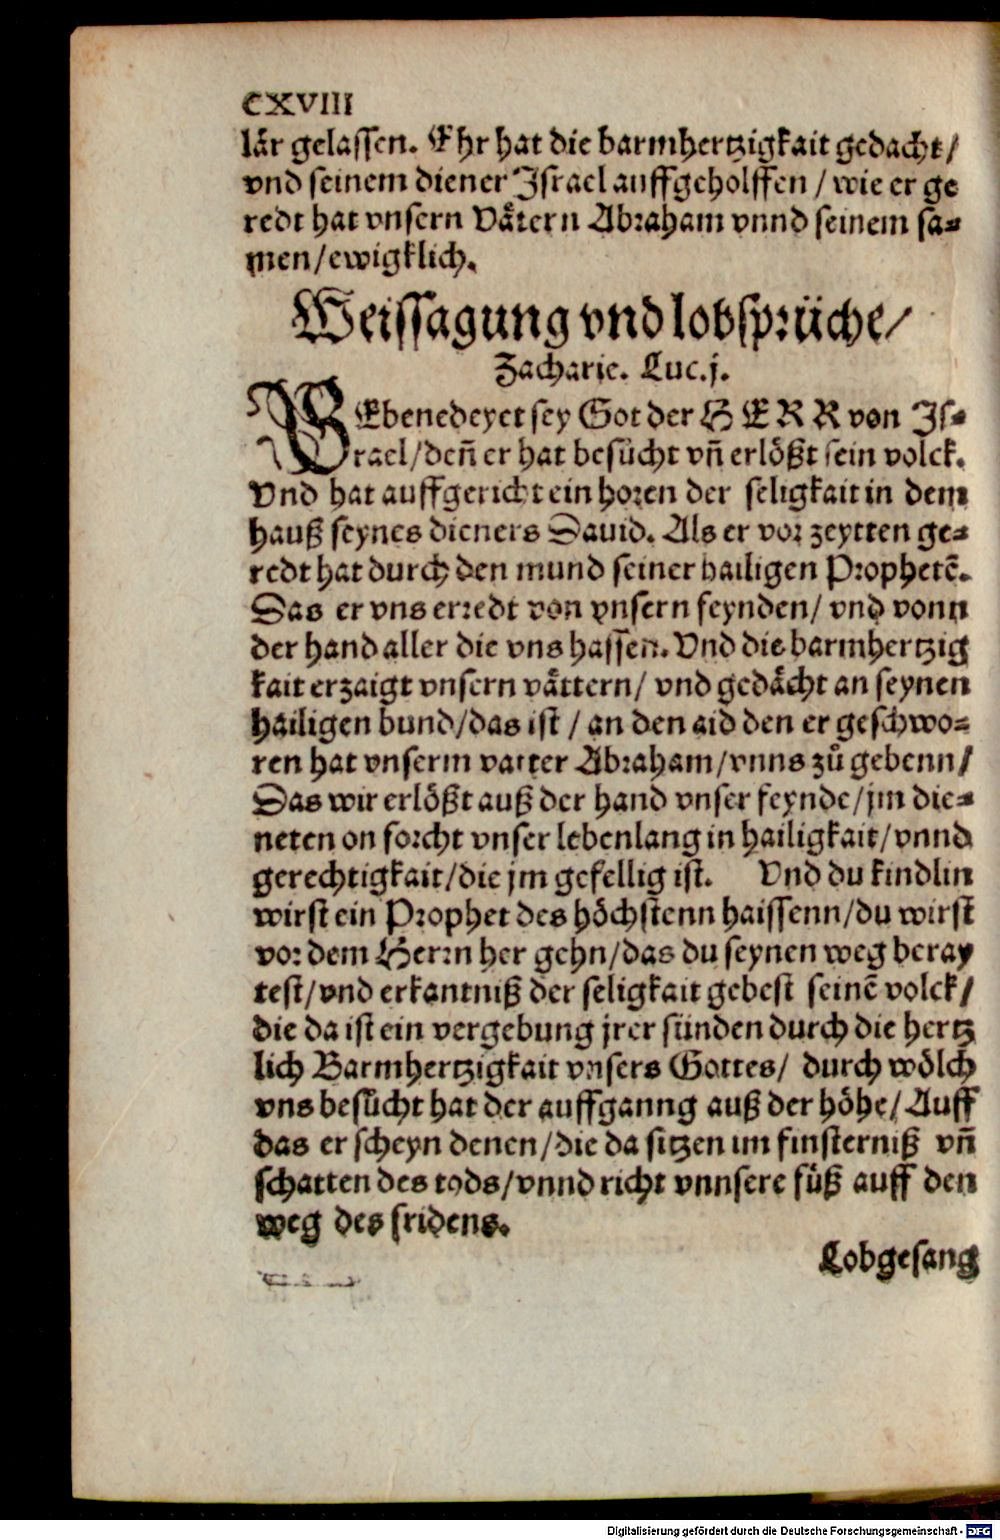 CXVIII
lär gelassen. Ehr hat die barmhertzigkait gedacht/
vnd seinem diener Israel auffgeholffen / wie er ge
redt hat vnsern Vätern Abraham vnnd seinem sa-
men/ewigklich.
Weissagung vnd lobsprüche/
Zacharie. Luc.j.
GEbenedeyet sey Got der HERR von Is-
rael/deñ er hat besücht vñ erlößt sein volck.
Vnd hat auffgericht ein horen der seligkait in dem
hauß seynes dieners Dauid. Als er vor zeytten ge-
redt hat durch den mund seiner hailigen Prophetē.
Das er vns erredt von vnsern feynden/ vnd vonn
der hand aller die vns hassen. Vnd die barmhertzig
kait erzaigt vnsern vättern/ vnd gedächt an seynen
hailigen bund/das ist / an den aid den er geschwo-
ren hat vnserm vatter Abraham/vnns zů gebenn/
Das wir erlößt auß der hand vnser feynde/jm die-
neten on forcht vnser lebenlang in hailigkait/vnnd
gerechtigkait/die jm gefellig ist. Vnd du kindlin
wirst ein Prophet des höchstenn haissenn/du wirst
vor dem Herrn her gehn/das du seynen weg beray
test/vnd erkantniß der seligkait gebest seinē volck/
die da ist ein vergebung jrer sünden durch die hertz
lich Barmhertzigkait vnsers Gottes/ durch wölch
vns besücht hat der auffganng auß der höhe/Auff
das er scheyn denen/die da sitzen im finsterniß vñ
schatten des tods/vnnd richt vnnsere füß auff den
weg des fridens.
Lobgesang
Digitalisierung gefördert durch die Deutsche Forschungsgemeinschaft - DFG